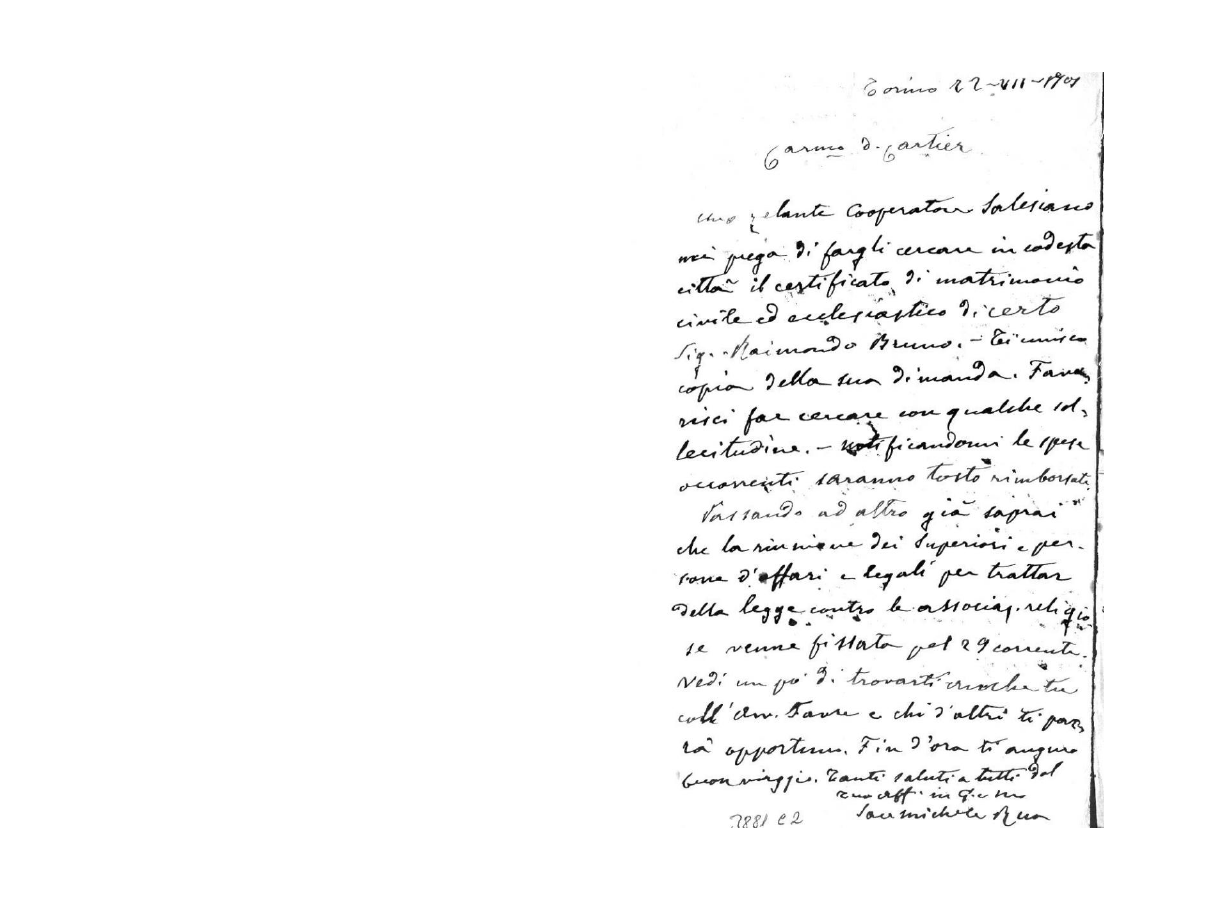 Torino 22-VII-1901
Carmo D. Cartier
Uno zelante Cooperatore Salesiano
mi prega di fargli cercare in codesta
città il certificato di matrimonio
civile ed ecclesiastico di certo
Sig. Raimondo Bruno. - Ti unisco
copia della sua dimanda. Favo-
risci far cercare con qualche sol-
lecitudine. - notificandomi le spese
occorrenti saranno tosto rimborsate.
Passando ad altro già saprai
che la riunione dei Superiori e per-
sone d'affari e legali per trattar
della legge contro le associaz. religio-
se venne fissata pel 29 corrente.
Vedi un po' di trovarti anche tu
coll'Avv. Favre e chi d'altri ti par-
rà opportuno. Fin d'ora ti auguro
buon viaggio. Tanti saluti a tutti dal
tuo aff. in G. e M.
Sac. Michele Rua
3881 C2